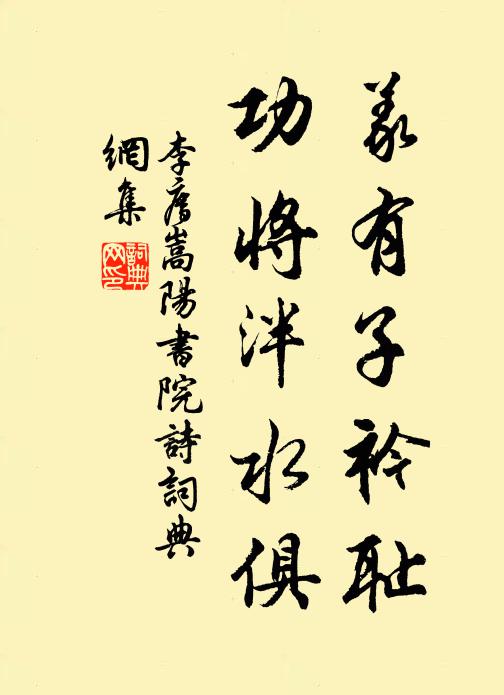 義有子衿耻
功將泮水俱
李廌嵩陽書院詩詞典
網集
詞典網印